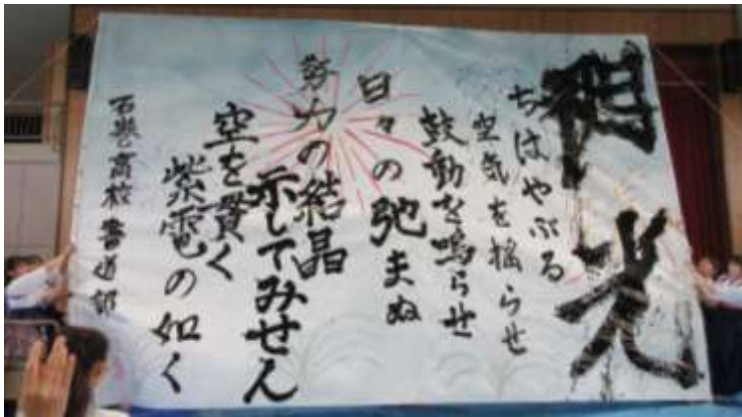 光
ちはやぶる
空気を揺らせ
鼓動を鳴らせ
日々の弛まぬ
努力の結晶
示してみせん
空を貫く
紫電の如く
石巻高校書道部